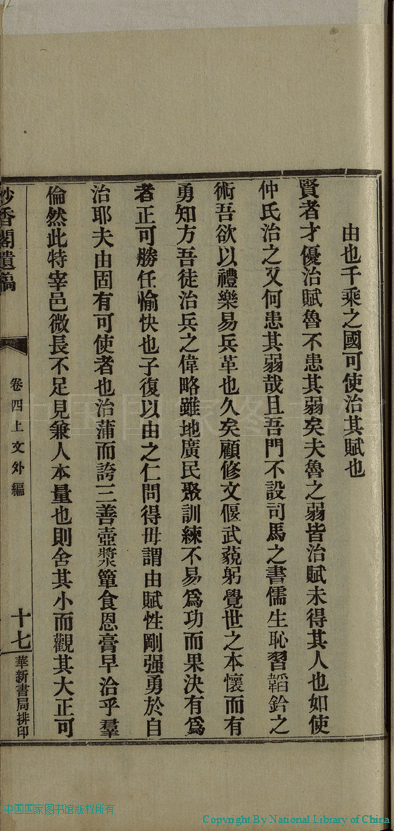 由也千乘之國可使治其賦也
賢者才優治賦魯不患其弱矣夫魯之弱皆治賦未得其人也如使
仲氏治之又何患其弱哉且吾門不設司馬之書儒生恥習韜鈐之
術吾欲以禮樂易兵革也久矣顧修文偃武藐躬覺世之本懷而有
勇知方吾徒治兵之偉略雖地廣民聚訓練不易為功而果決有為
者正可勝任愉快也子復以由之仁問得毋謂由賦性剛强勇於自
治耶夫由固有可使者也治蒲而誇三善壺漿簞食恩膏早洽乎羣
倫然此特宰邑微長不足見兼人本量也則舍其小而觀其大正可
妙香閣遺稿
卷四上文外編
十七
華新書局排印
中国国家图书馆版权所有
Copyright By National Library of China